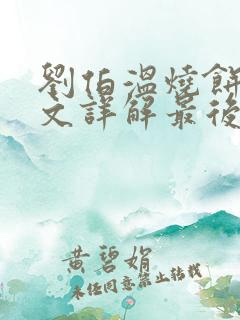 劉伯溫燒餅
文詳解最後
黃碧娟
未經同意禁止轉載